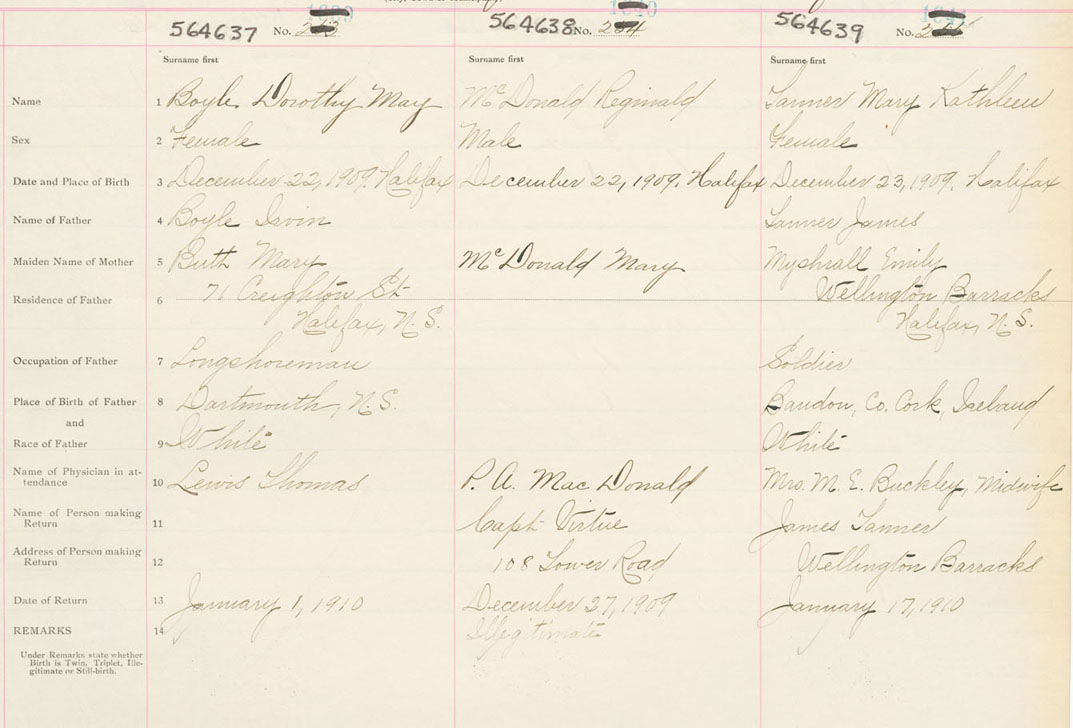 564637 No.
564638 No. 204
564639 No.
Surname first Surname first Surname first
Name 1 Boyle Dorothy May McDonald Reginald Tanner Mary Kathleen
Sex 2 Female Male Female
Date and Place of Birth 3 December 22, 1909. Halifax December 22, 1909. Halifax December 23, 1909. Halifax
Name of Father 4 Boyle Irvin Tanner James
Maiden Name of Mother 5 Mary McDonald Mary Myshrall Emily
Residence of Father 6 71 Creighton St Wellington Barracks
Halifax, N.S. Halifax, N.S.
Occupation of Father 7 Longshoreman Soldier
Place of Birth of Father 8 Dartmouth, N.S. Bandon, Co. Cork, Ireland
and
Race of Father 9 White White
Name of Physician in at-
tendance 10 Lewis Thomas P. A. MacDonald Mrs. M. E. Buckley, Midwife
Name of Person making
Return 11 Capt Virtue James Tanner
Address of Person making
Return 12 108 Lower Road Wellington Barracks
Date of Return 13 January 1, 1910 December 27, 1909 January 17, 1910
REMARKS 14 Illegitimate
Under Remarks state whether
Birth is Twin, Triplet, Ille-
gitimate or Still-birth.